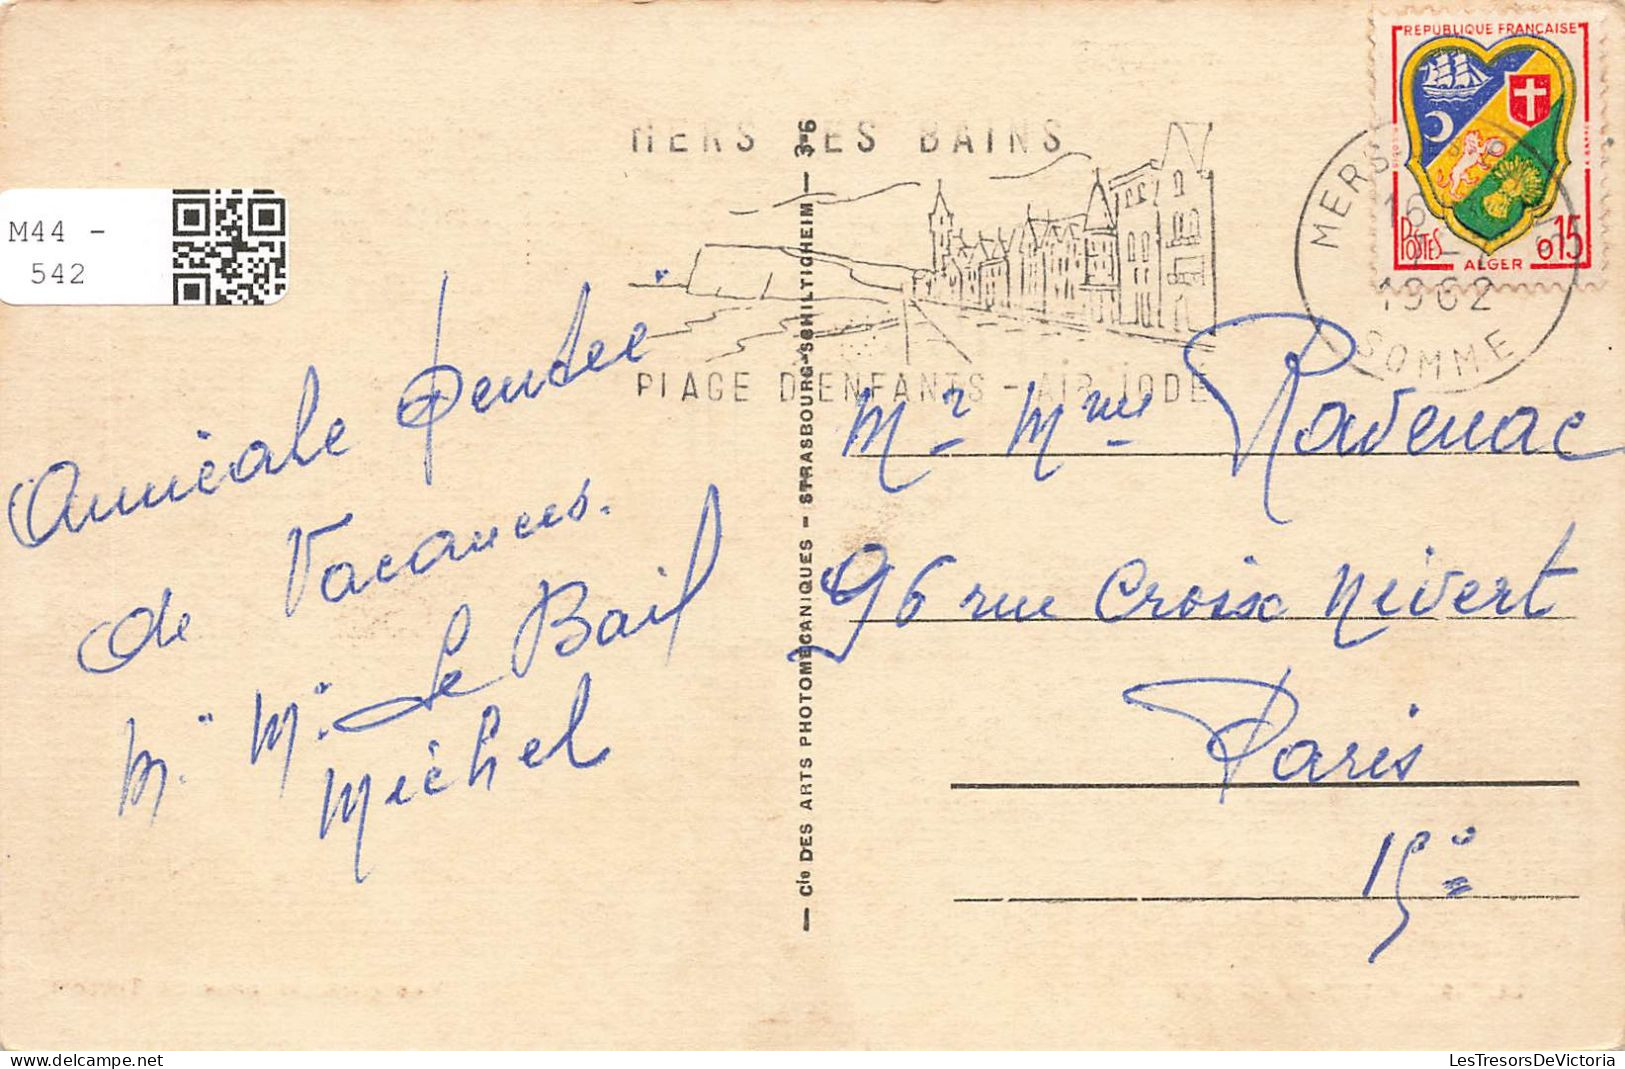 RÉPUBLIQUE FRANÇAISE
POSTES
ALGER
0,15
MERS
16
1962
SOMME
MERS LES BAINS
PLAGE D'ENFANTS - AIR IODÉ
M44 -
542
Amicale pensée
de Vacances.
Mr Me Le Bail
Michel
Cie DES ARTS PHOTOMECANIQUES - STRASBOURG-SCHILTIGHEIM - 3-6
Mr Mme Ravenac
96 rue Croix Nivert
Paris
15e
LesTresorsDeVictoria